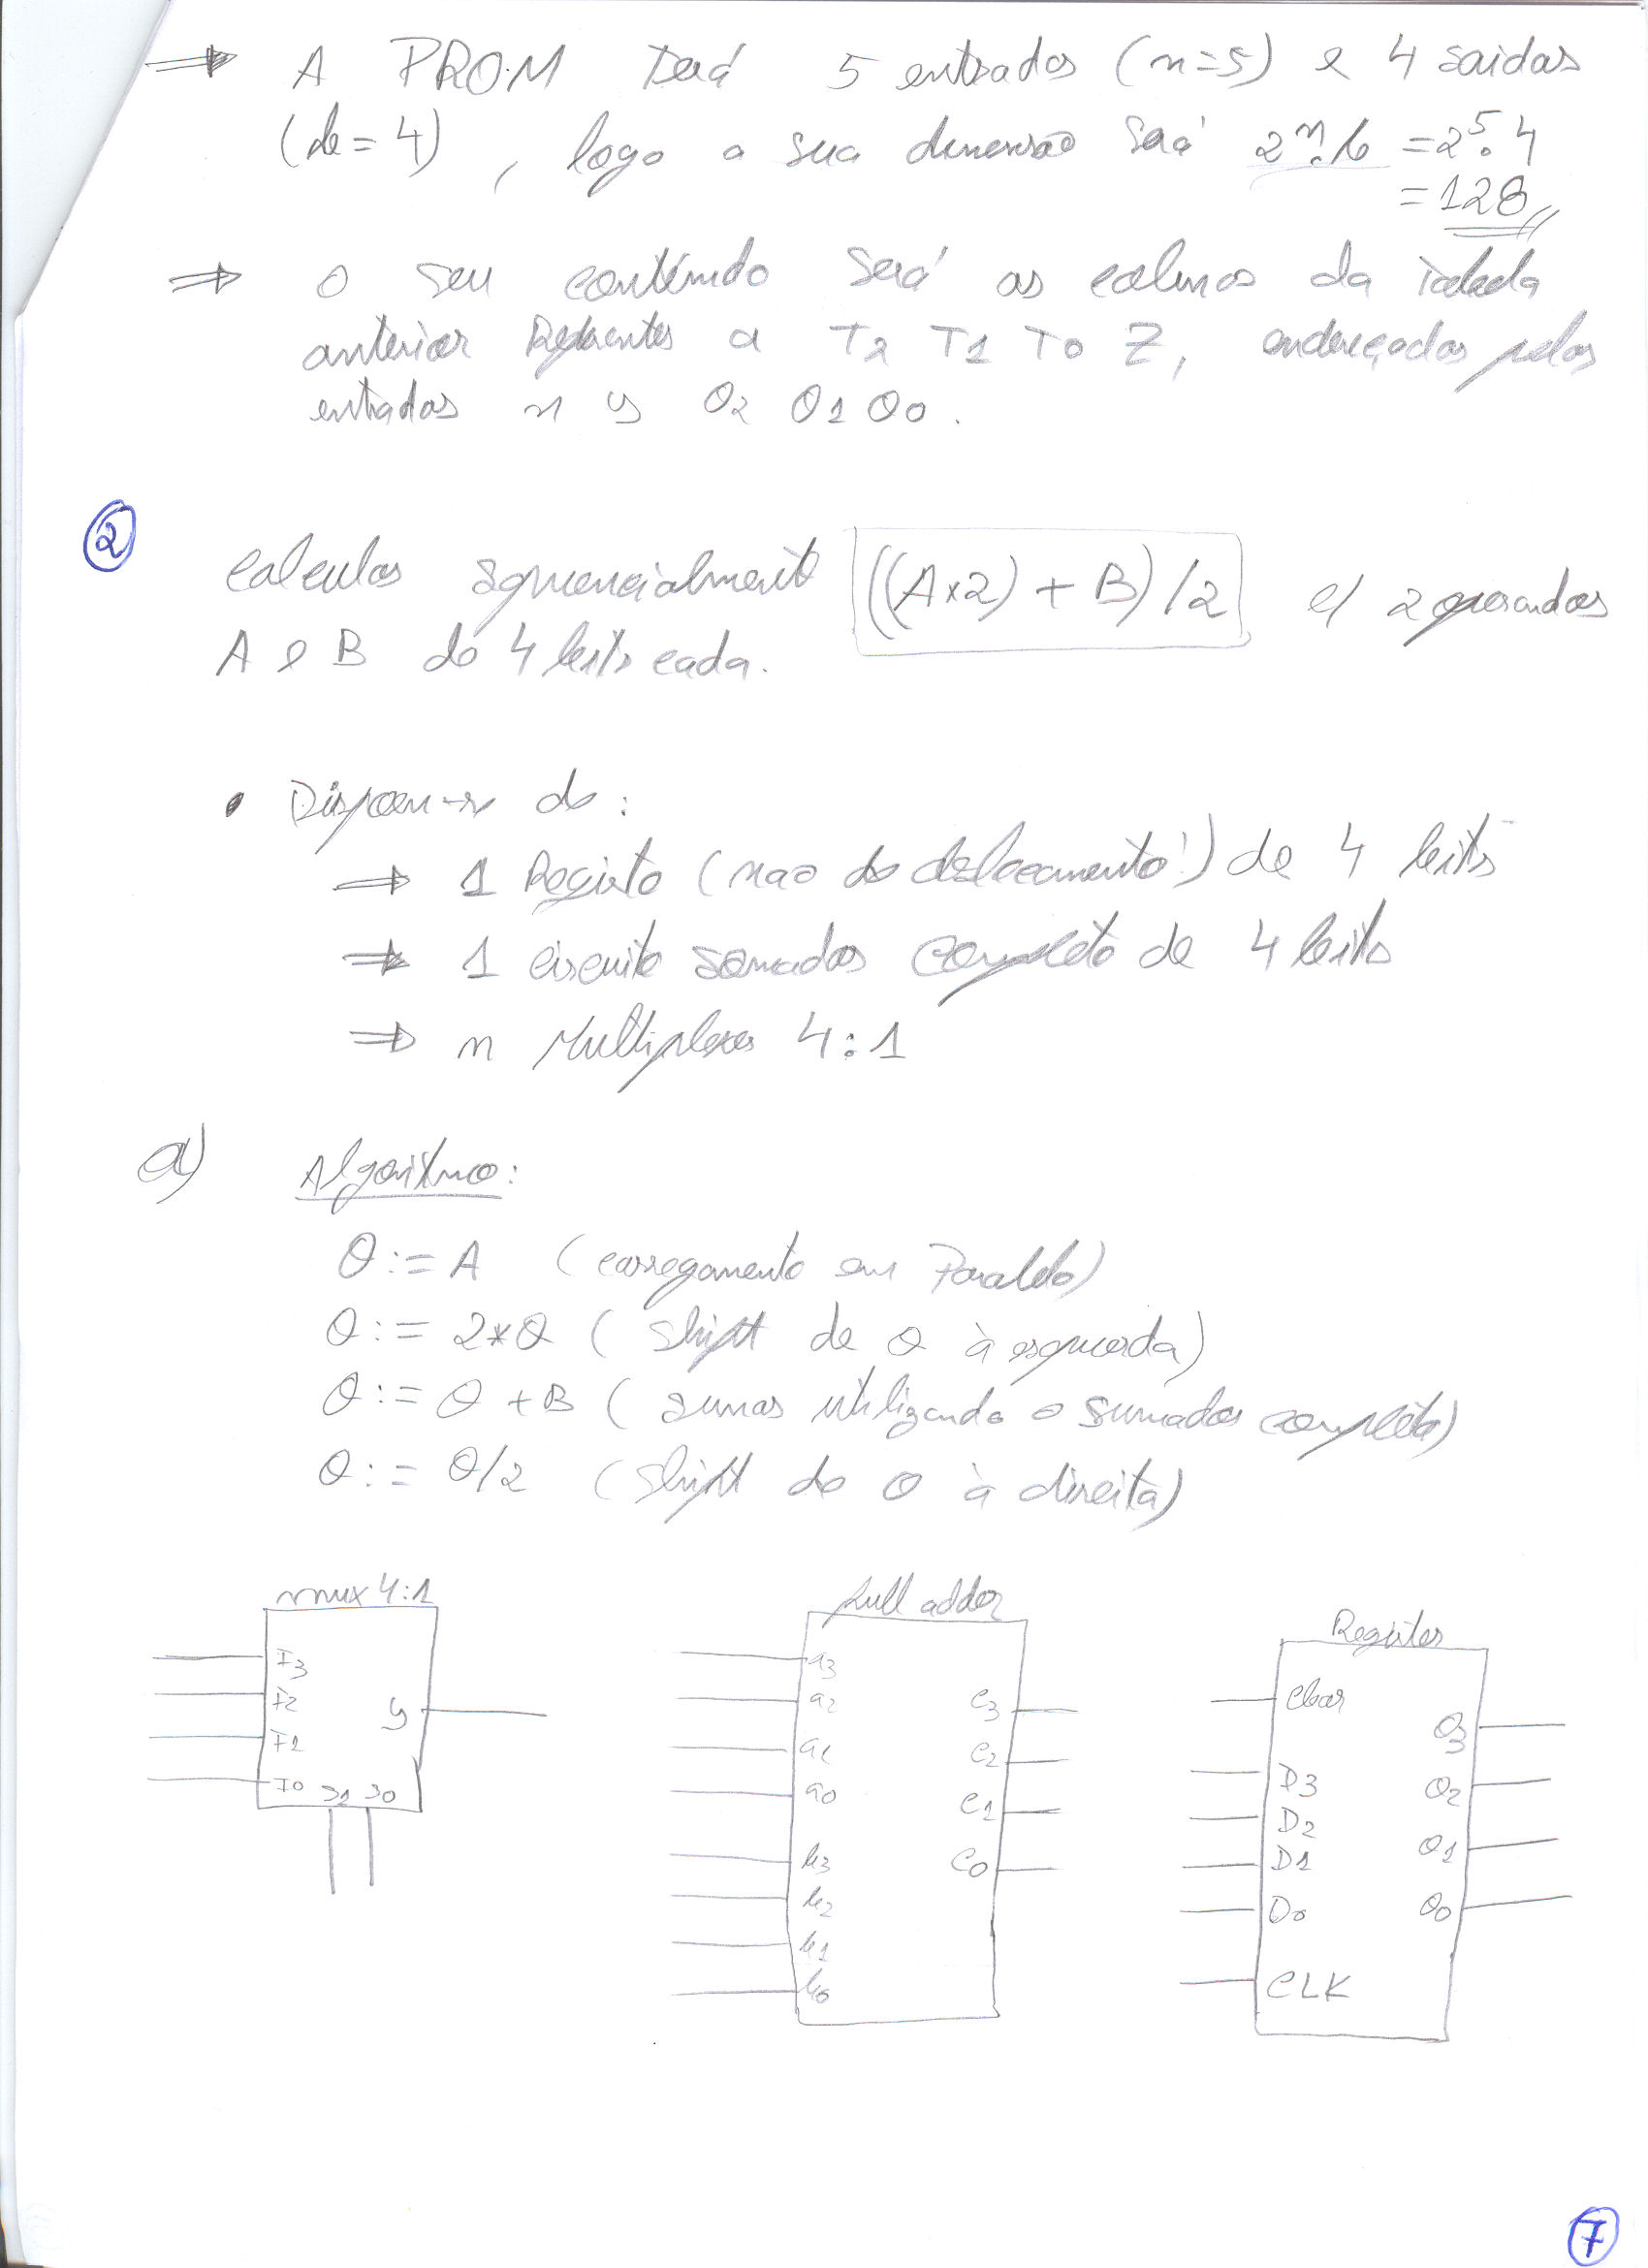 ⇒ A PROM terá 5 entradas (n=5) e 4 saídas
(b=4), logo a sua dimensão será 2ⁿ.b = 2⁵.4
= 128
⇒ O seu conteúdo será as colunas da tabela
anterior Referentes a T2 T1 T0 Z, endereçadas pelas
entradas x y Q2 Q1 Q0.
2
Calcular sequencialmente ((A×2) + B)/2 c/ 2 operandos
A e B de 4 bits cada.
• Dispõem-se de:
⇒ 1 Registo (não de deslocamento!) de 4 bits
⇒ 1 circuito somador completo de 4 bits
⇒ n Multiplexers 4:1
a) Algoritmo:
Q := A (carregamento em Paralelo)
Q := 2*Q (shift de Q à esquerda)
Q := Q + B (somar utilizando o somador completo)
Q := Q/2 (shift de Q à direita)
mux 4:1
I3
I2
I1
I0
S1 S0
y
full adder
a3
a2
a1
a0
b3
b2
b1
b0
C3
C2
C1
C0
Register
Clear
D3
D2
D1
D0
CLK
Q3
Q2
Q1
Q0
7